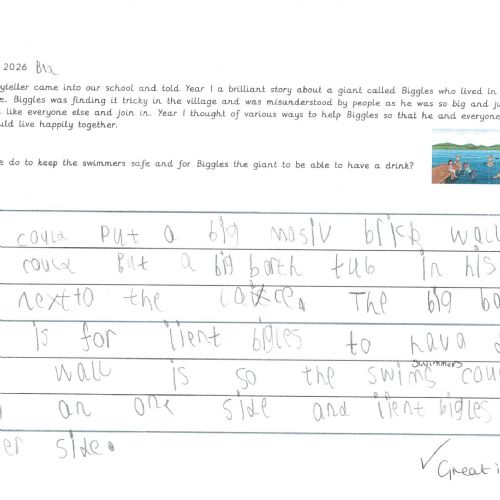 2026
yteller came into our school and told Year 1 a brilliant story about a giant called Biggles who lived in
e. Biggles was finding it tricky in the village and was misunderstood by people as he was so big and ju
like everyone else and join in. Year 1 thought of various ways to help Biggles so that he and everyone
uld live happily together.
e do to keep the swimmers safe and for Biggles the giant to be able to have a drink?
coula put a big masiv brick wall
coula put a big barth tub in his
nextto the The big ba
is for iient bigles to hava
swimmers
wall is so the swims cou
an one side and iient bigles
er side.
✓ Great i